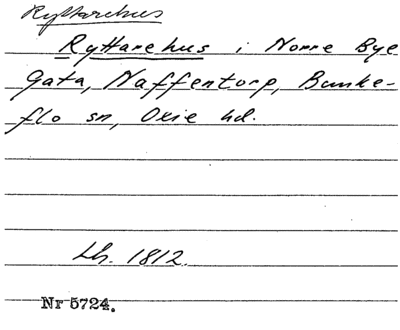 Ryttarehus
Ryttarehus i Norre Bye
Gata, Naffentorp, Bunke-
flo sn, Oxie hd.
Lh. 1812.
Nr 5724.